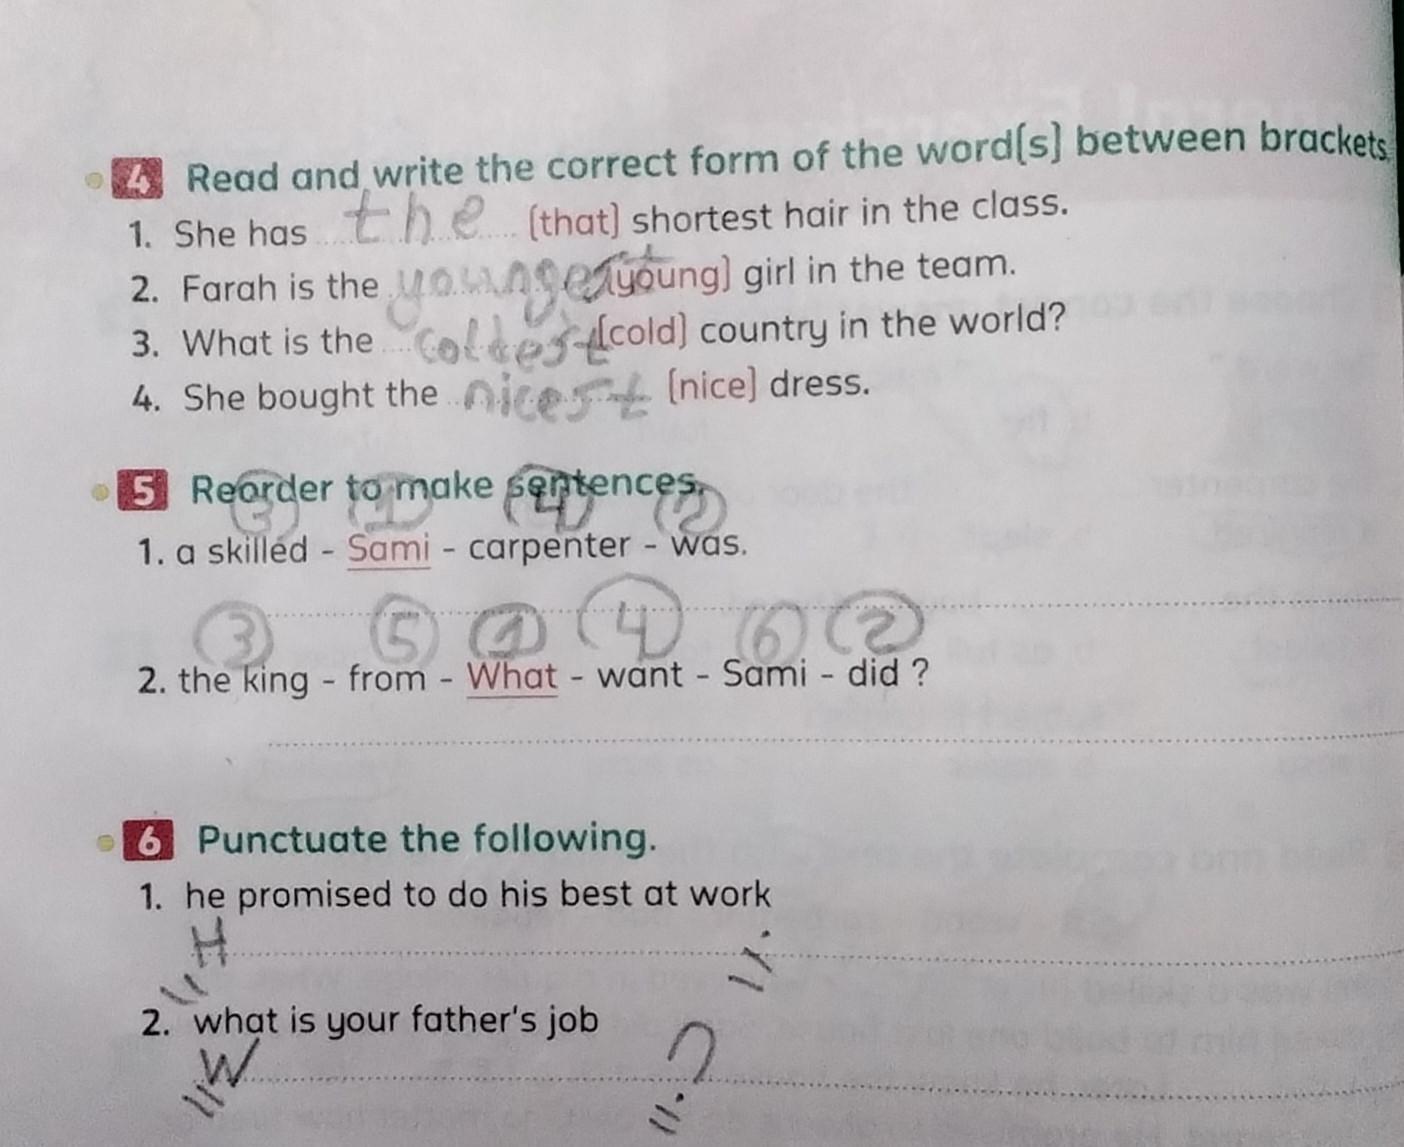 4 Read and write the correct form of the word(s) between brackets.
1. She has the (that) shortest hair in the class.
2. Farah is the youngest (young) girl in the team.
3. What is the coldest (cold) country in the world?
4. She bought the nicest (nice) dress.
5 Reorder to make sentences.
3 1 4 2
1. a skilled - Sami - carpenter - was.
3 5 1 4 6 2
2. the king - from - What - want - Sami - did ?
6 Punctuate the following.
1. he promised to do his best at work
H .
2. what is your father's job
W ?